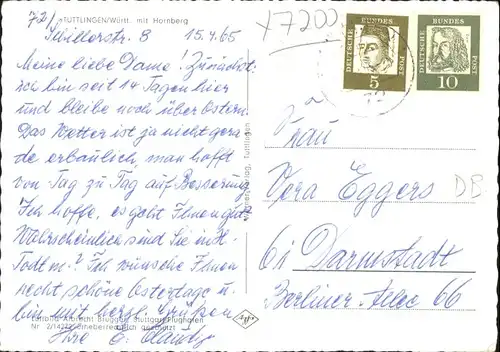 72/
TUTTLINGEN/Württ. mit Honberg
Schillerstr. 8 15.4.65
X7200
Meine liebe Dame! Zunächst:
ich bin seit 14 Tagen hier
und bleibe noch über Ostern.
Das Wetter ist ja nicht gera
de erbaulich, man hofft
von Tag zu Tag auf Besserung.
Ich hoffe, es geht Ihnen gut.
Wahrscheinlich sind Sie mit
Ich wünsche Ihnen
recht schöne Ostertage u.
bin mit herzl. Grüßen
Ihre E.
Luftbild Albrecht Brugger, Stuttgart-Flughafen
Verlag, Tuttlingen
DEUTSCHE BUNDESPOST
5
DEUTSCHE BUNDESPOST
10
Frau
Vera Eggers
61 Darmstadt
Berliner Allee 66
DB